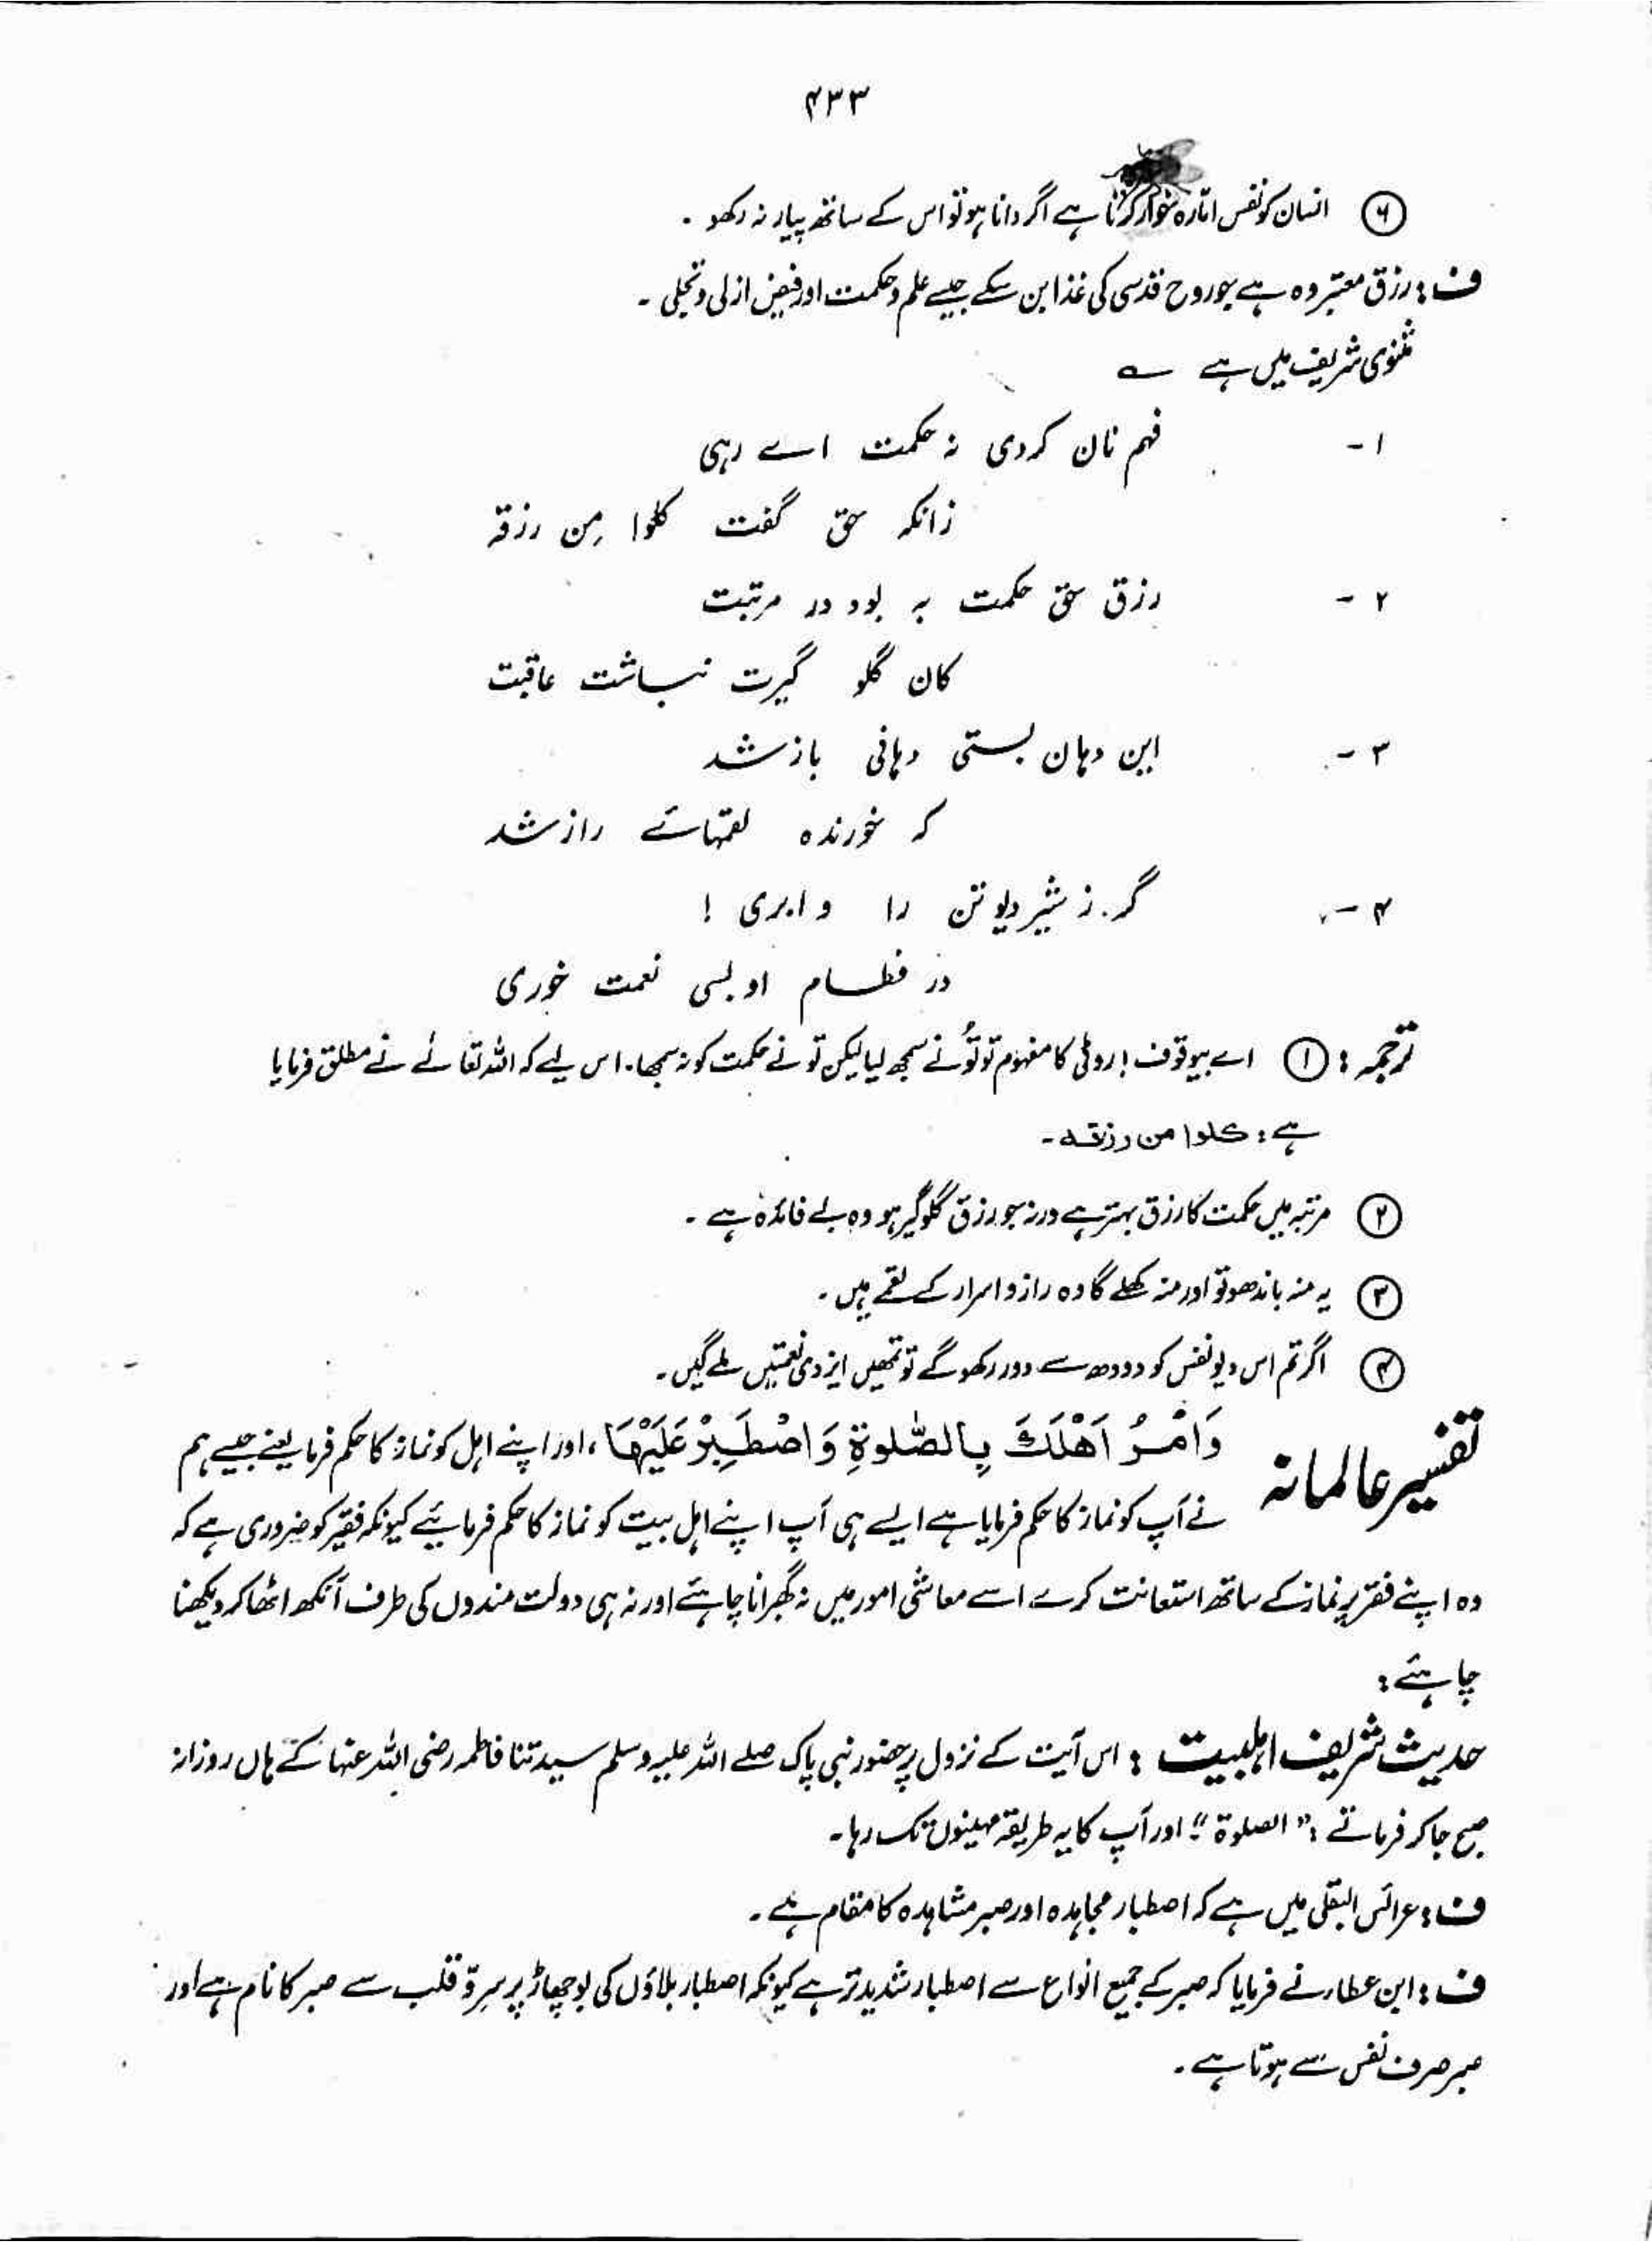 ۴۳۳
۶ انسان کو نفس امّارہ خوار کرتا ہے اگر دانا ہو تو اس کے ساتھ پیار نہ رکھو ۔
ف : رزق معتبر وہ ہے جو روح قدسی کی غذا بن سکے جیسے علم و حکمت اور فیض ازلی و تجلی ۔
مثنوی شریف میں ہے ؎
۱- فہم نان کردی نہ حکمت اے رہی
زانکہ حق گفت کلوا مِن رزقہ
۲- رزق حق حکمت بہ بود در مرتبت
کان گلو گیرت نباشت عاقبت
۳- این دہان بستی دہانی باز شد
کہ خورندہ لقمہائے راز شد
۴- گر ز شیر دیو تن را وا بری !
در فطام او بسی نعمت خوری
ترجمہ : ۱ اے بیوقوف ! روٹی کا مفہوم تو تُو نے سمجھ لیا لیکن تو نے حکمت کو نہ سمجھا۔ اس لیے کہ اللہ تعالےٰ نے مطلق فرمایا
ہے : کلوا من رزقہ ۔
۲ مرتبہ میں حکمت کا رزق بہتر ہے ورنہ جو رزق گلوگیر ہو وہ بے فائدہ ہے ۔
۳ یہ منہ باندھو تو اور منہ کھلے گا وہ راز و اسرار کے لقمے ہیں ۔
۴ اگر تم اس دیو نفس کو دودھ سے دور رکھو گے تو تمھیں ایزدی نعمتیں ملے گیں ۔
تفسیر عالمانہ وَاْمُرْ اَهْلَكَ بِالصَّلٰوةِ وَاصْطَبِرْ عَلَيْهَا ، اور اپنے اہل کو نماز کا حکم فرما یعنے جیسے ہم
نے آپ کو نماز کا حکم فرمایا ہے ایسے ہی آپ اپنے اہل بیت کو نماز کا حکم فرمائیے کیونکہ فقیر کو ضروری ہے کہ
وہ اپنے فقر پر نماز کے ساتھ استعانت کرے اسے معاشی امور میں نہ گھبرانا چاہئے اور نہ ہی دولت مندوں کی طرف آنکھ اٹھا کر دیکھنا
چاہئے :
حدیث شریف اہلبیت : اس آیت کے نزول پر حضور نبی پاک صلے اللہ علیہ وسلم سیدتنا فاطمہ رضی اللہ عنہا کے ہاں روزانہ
صبح جا کر فرماتے :" الصلوۃ "؛ اور آپ کا یہ طریقہ مہینوں تک رہا ۔
ف : عرائس البقلی میں ہے کہ اصطبار مجاہدہ اور صبر مشاہدہ کا مقام ہے ۔
ف : ابن عطار نے فرمایا کہ صبر کے جمیع انواع سے اصطبار شدید تر ہے کیونکہ اصطبار بلاؤں کی بوچھاڑ پر سِرّ و قلب سے صبر کا نام ہے اور
صبر صرف نفس سے ہوتا ہے ۔